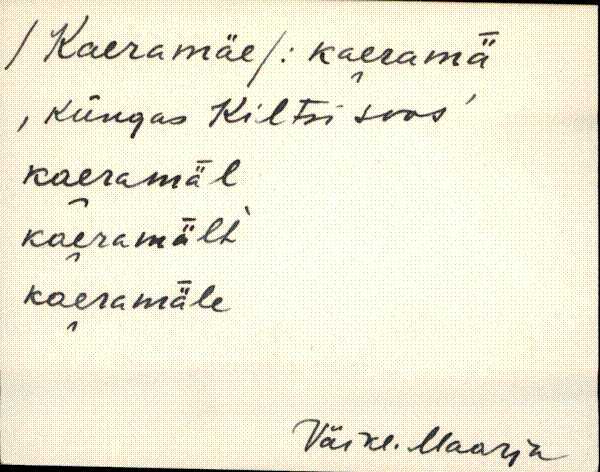 /Kaeramäe/: kae̯ramǟ
, küngas Kiltsi soos ’
kae̯ramǟl
kae̯ramǟlt̀
kae̯ramǟle
Väike-Maarja